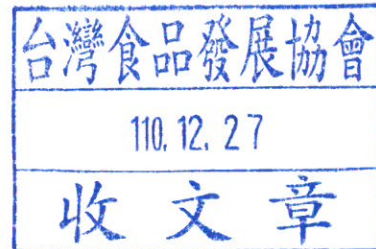 台灣食品發展協會
110.12.27
收文章